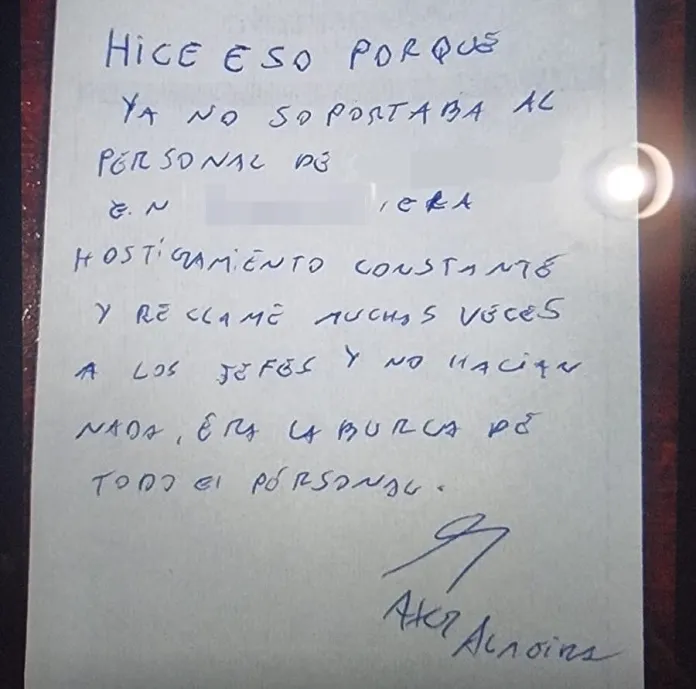 HICE ESO PORQUE
YA NO SOPORTABA AL
PERSONAL DE
EN , ERA
HOSTIGAMIENTO CONSTANTE
Y RECLAME MUCHAS VECES
A LOS JEFES Y NO HACIAN
NADA, ERA LA BURLA DE
TODO El PERSONAL.